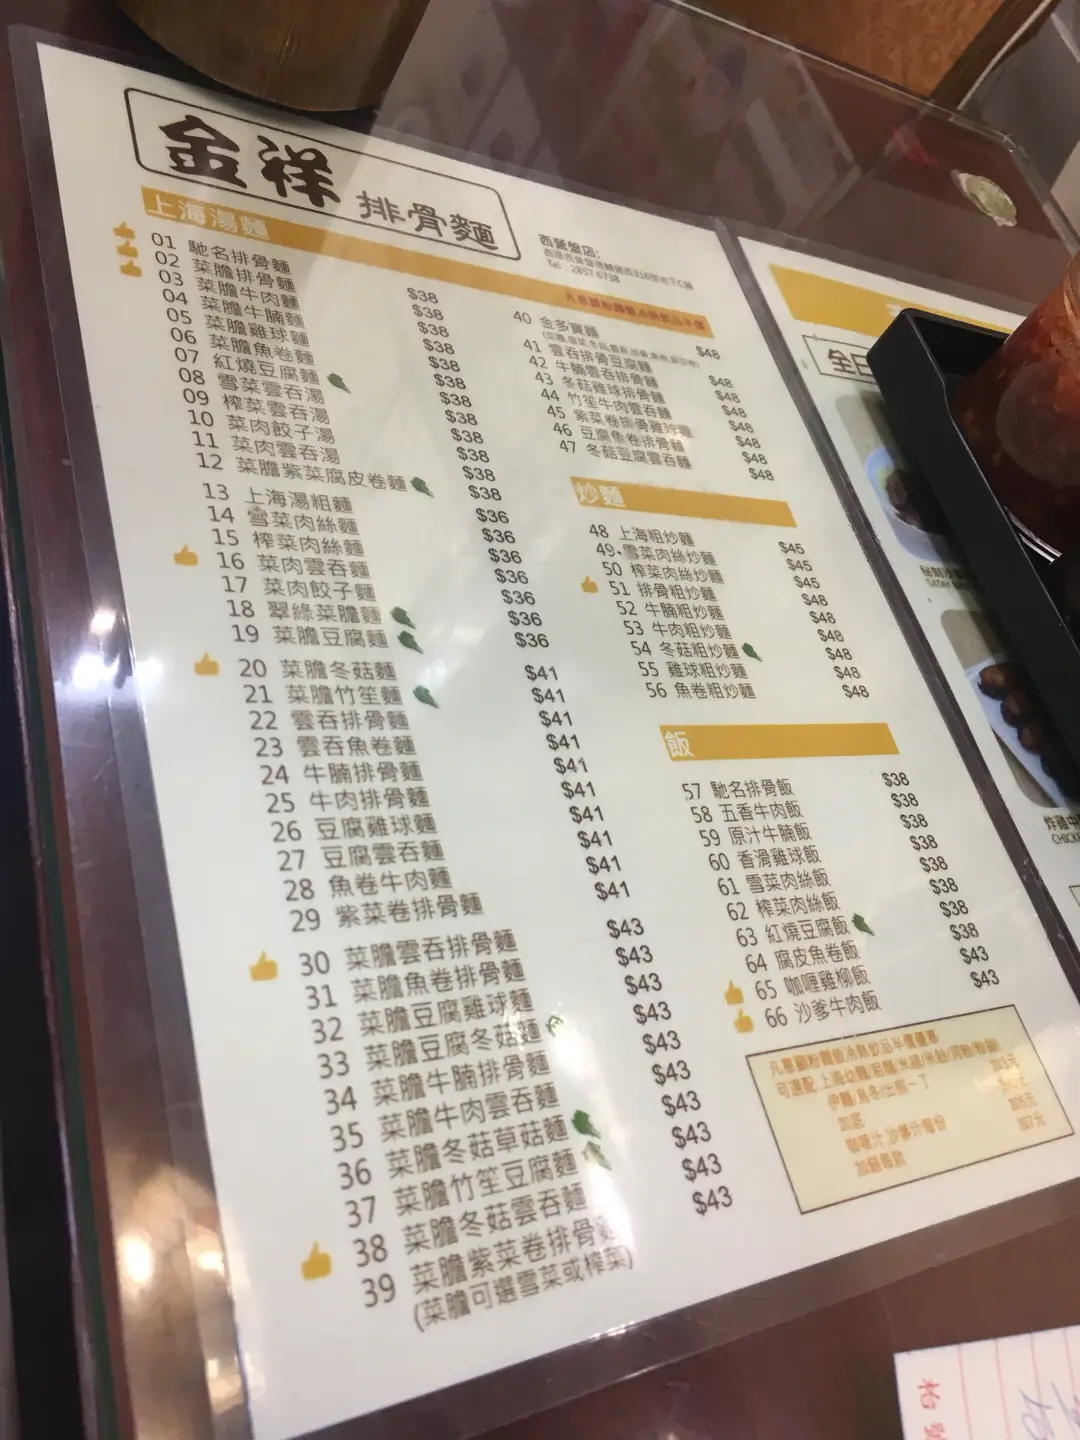 金祥 排骨麵
西營盤店:
Tel : 2857 6738
上海湯麵
01 馳名排骨麵 $38
02 菜膽排骨麵 $38
03 菜膽牛肉麵 $38
04 菜膽牛腩麵 $38
05 菜膽雞球麵 $38
06 菜膽魚卷麵 $38
07 紅燒豆腐麵 $38
08 雪菜雲吞湯 $38
09 榨菜雲吞湯 $38
10 菜肉餃子湯 $38
11 菜肉雲吞湯 $38
12 菜膽紫菜腐皮卷麵 $38
13 上海湯粗麵 $36
14 雪菜肉絲麵 $36
15 榨菜肉絲麵 $36
16 菜肉雲吞麵 $36
17 菜肉餃子麵 $36
18 翠綠菜膽麵 $36
19 菜膽豆腐麵 $36
20 菜膽冬菇麵 $41
21 菜膽竹笙麵 $41
22 雲吞排骨麵 $41
23 雲吞魚卷麵 $41
24 牛腩排骨麵 $41
25 牛肉排骨麵 $41
26 豆腐雞球麵 $41
27 豆腐雲吞麵 $41
28 魚卷牛肉麵 $41
29 紫菜卷排骨麵 $41
30 菜膽雲吞排骨麵 $43
31 菜膽魚卷排骨麵 $43
32 菜膽豆腐雞球麵 $43
33 菜膽豆腐冬菇麵 $43
34 菜膽牛腩排骨麵 $43
35 菜膽牛肉雲吞麵 $43
36 菜膽冬菇草菇麵 $43
37 菜膽竹笙豆腐麵 $43
38 菜膽冬菇雲吞麵 $43
39 菜膽紫菜卷排骨麵 $43
(菜膽可選雪菜或榨菜)
凡惠顧粉麵飯冷熱飲品半價
40 金多寶麵 $48
41 雲吞排骨豆腐麵 $48
42 牛腩雲吞排骨麵 $48
43 冬菇雞球排骨麵 $48
44 竹笙牛肉雲吞麵 $48
45 紫菜卷排骨雞球麵 $48
46 豆腐魚卷排骨麵 $48
47 冬菇豆腐雲吞麵 $48
炒麵
48 上海粗炒麵 $45
49 雪菜肉絲炒麵 $45
50 榨菜肉絲炒麵 $45
51 排骨粗炒麵 $48
52 牛腩粗炒麵 $48
53 牛肉粗炒麵 $48
54 冬菇粗炒麵 $48
55 雞球粗炒麵 $48
56 魚卷粗炒麵 $48
飯
57 馳名排骨飯 $38
58 五香牛肉飯 $38
59 原汁牛腩飯 $38
60 香滑雞球飯 $38
61 雪菜肉絲飯 $38
62 榨菜肉絲飯 $38
63 紅燒豆腐飯 $38
64 腐皮魚卷飯 $38
65 咖喱雞柳飯 $43
66 沙爹牛肉飯 $43
凡惠顧粉麵飯冷熱飲品半價優惠
加底
咖喱汁 沙爹汁每份
全日